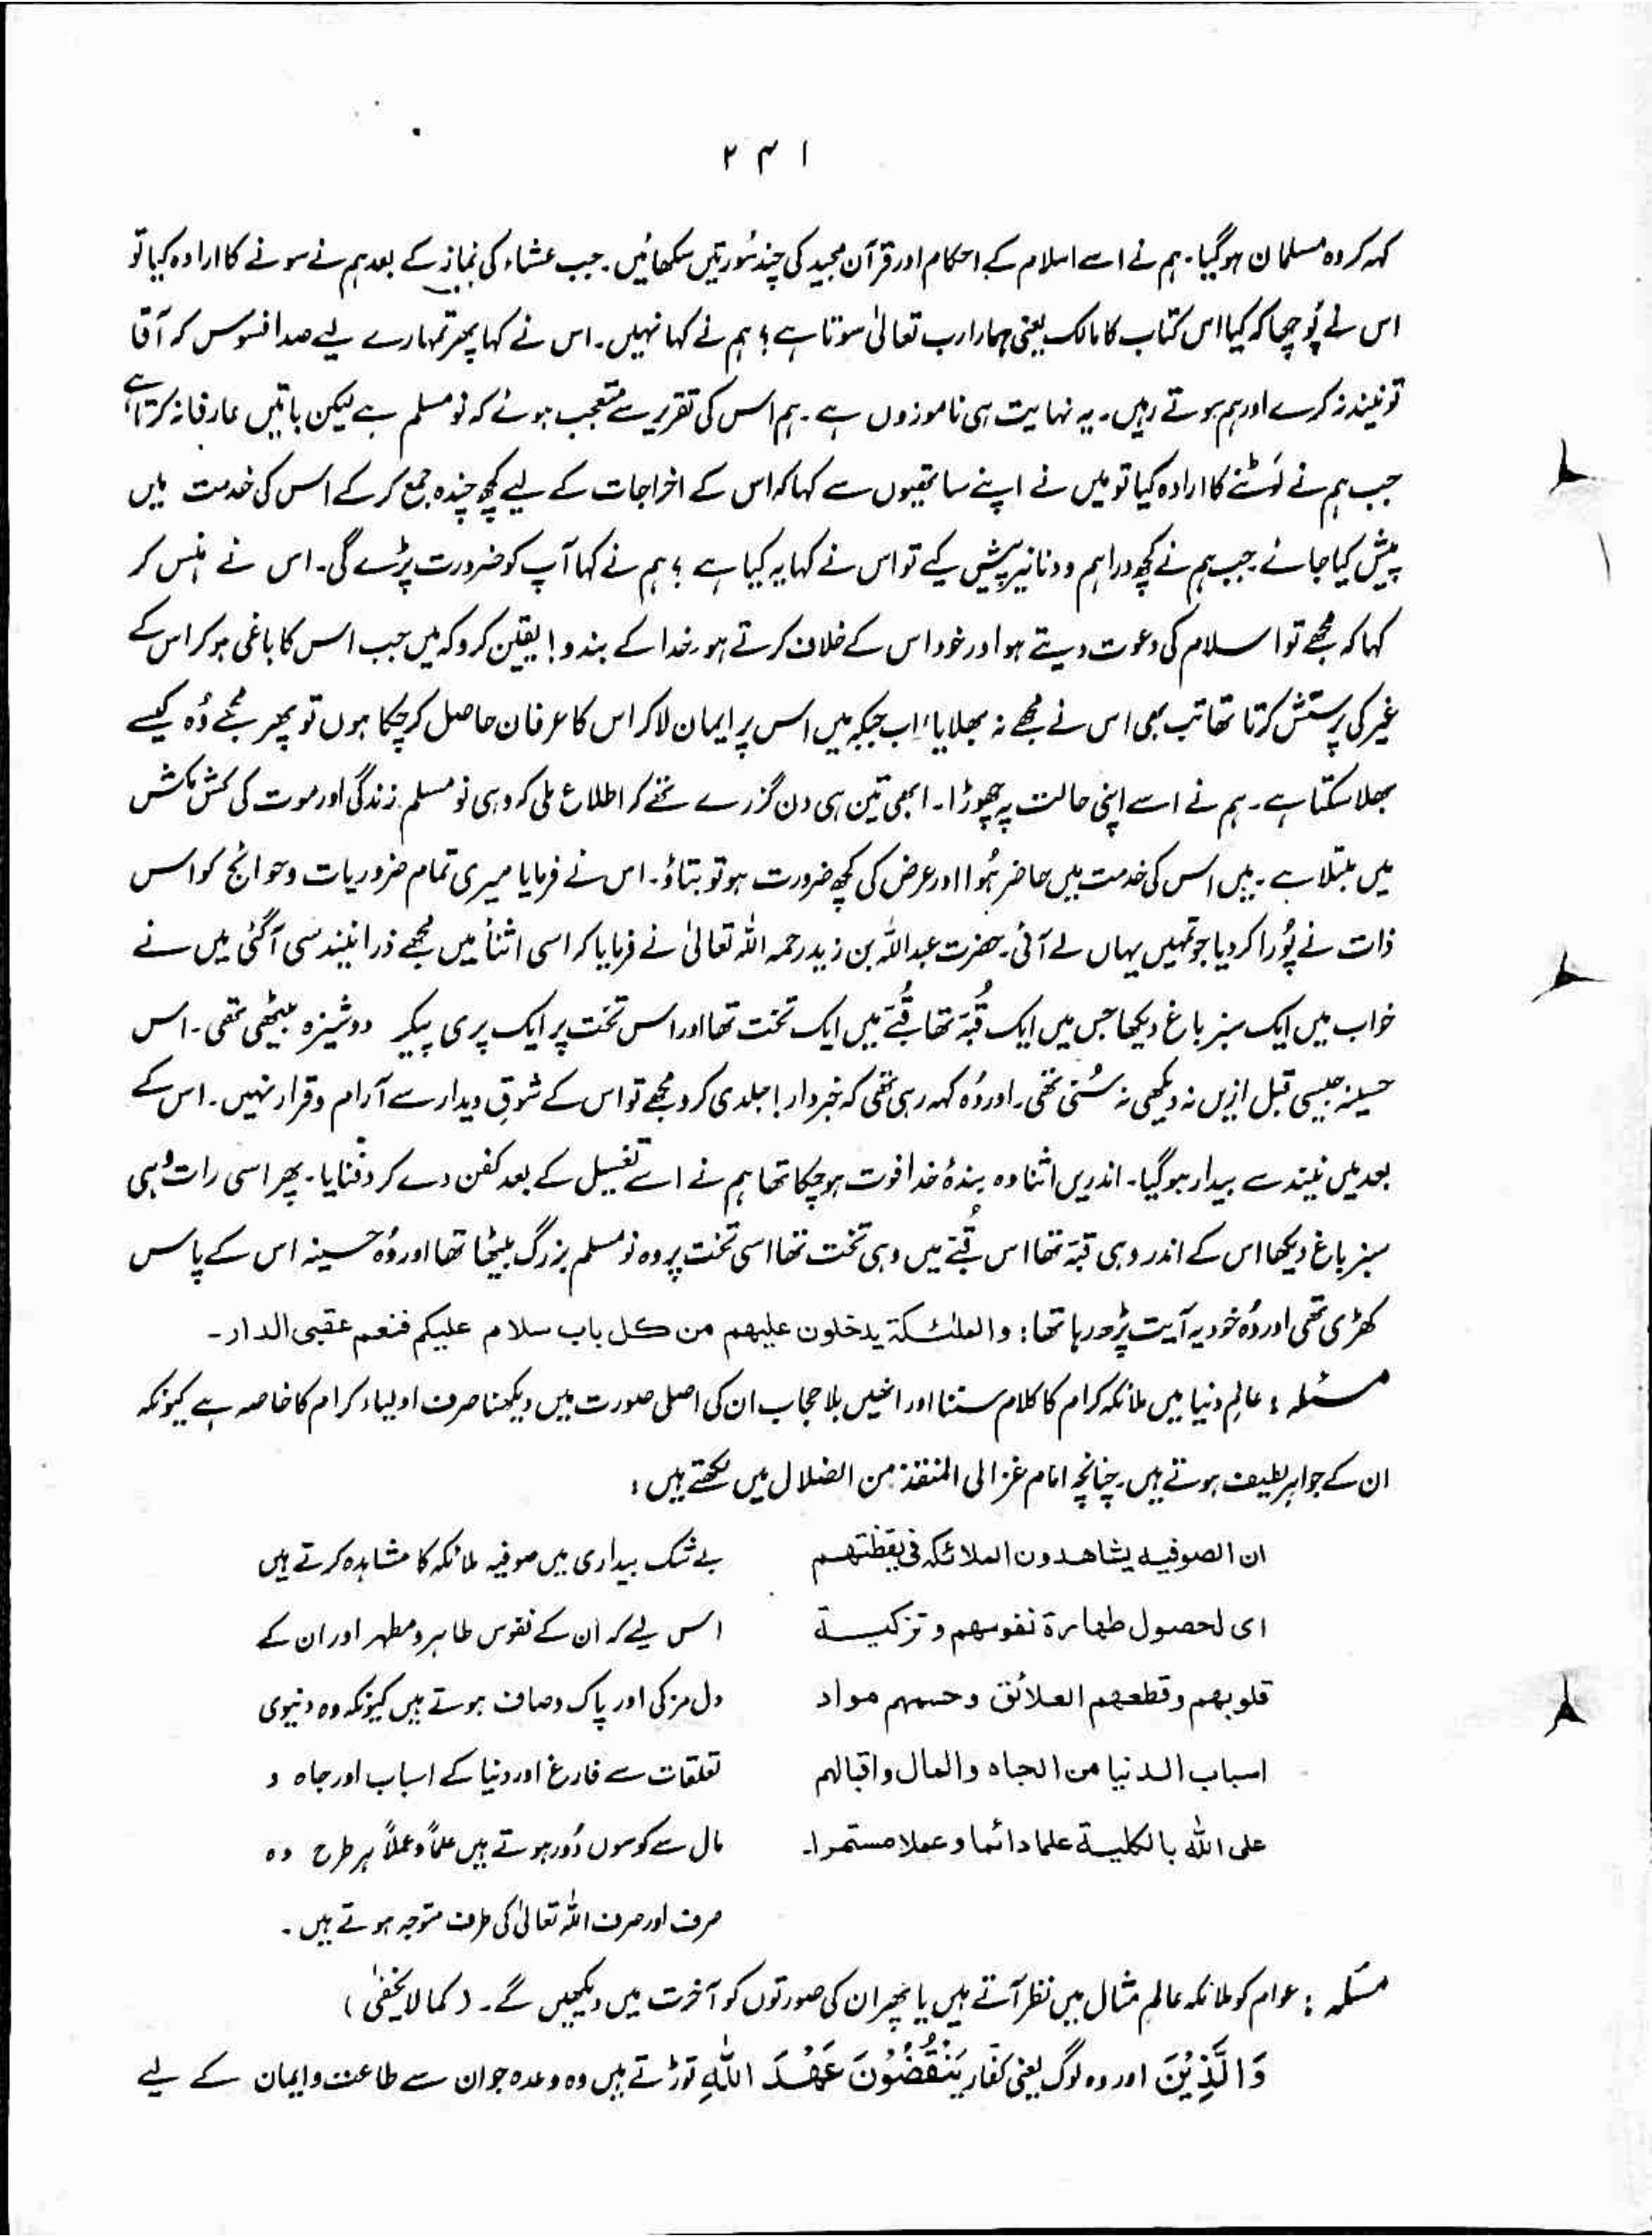 ۲۳۱
کہہ کر وہ مسلمان ہو گیا۔ ہم نے اسے اسلام کے احکام اور قرآن مجید کی چند سُورتیں سکھائیں۔ جب عشاء کی نماز کے بعد ہم نے سونے کا ارادہ کیا تو
اس نے پُوچھا کہ کیا اس کتاب کا مالک یعنی ہمارا رب تعالیٰ سوتا ہے؟ ہم نے کہا نہیں۔ اس نے کہا پھر تمہارے لیے صد افسوس کہ آقا
تو نیند نہ کرے اور ہم سوتے رہیں۔ یہ نہایت ہی ناموزوں ہے۔ ہم اس کی تقریر سے متعجب ہوئے کہ نومسلم ہے لیکن باتیں عارفانہ کرتا ہے
جب ہم نے لَوٹنے کا ارادہ کیا تو میں نے اپنے ساتھیوں سے کہا کہ اس کے اخراجات کے لیے کچھ چندہ جمع کر کے اس کی خدمت میں
پیش کیا جائے جب ہم نے کچھ دراہم و دنانیر پیش کیے تو اس نے کہا یہ کیا ہے؟ ہم نے کہا آپ کو ضرورت پڑے گی۔ اس نے ہنس کر
کہا کہ مجھے تو اسلام کی دعوت دیتے ہو اور خود اس کے خلاف کرتے ہو۔ خدا کے بندو! یقین کرو کہ میں جب اس کا باغی ہو کر اس کے
غیر کی پرستش کرتا تھا تب بھی اس نے مجھے نہ بھلایا، اب جبکہ میں اس پر ایمان لا کر اس کا عرفان حاصل کر چکا ہوں تو پھر مجھے وُہ کیسے
بھلا سکتا ہے۔ ہم نے اسے اپنی حالت پہ چھوڑا۔ ابھی تین ہی دن گزرے تھے کہ اطلاع ملی کہ وہی نومسلم زندگی اور موت کی کش مکش
میں مبتلا ہے۔ میں اس کی خدمت میں حاضر ہُوا اور عرض کی کچھ ضرورت ہو تو بتاؤ۔ اس نے فرمایا میری تمام ضروریات و حوائج کو اس
ذات نے پُورا کر دیا جو تمہیں یہاں لے آئی۔ حضرت عبداللہ بن زید رحمہ اللہ تعالیٰ نے فرمایا کہ اسی اثنأ میں مجھے ذرا نیند سی آگئی میں نے
خواب میں ایک سبز باغ دیکھا جس میں ایک قُبّہ تھا قُبّے میں ایک تخت تھا اور اس تخت پر ایک پری پیکر دوشیزہ بیٹھی تھی۔ اس
حسینہ جیسی قبل ازیں نہ دیکھی نہ سُنی تھی۔ اور وُہ کہہ رہی تھی کہ خبردار! جلدی کرو مجھے تو اس کے شوقِ دیدار سے آرام و قرار نہیں۔ اس کے
بعد میں نیند سے بیدار ہو گیا۔ اندریں اثنا وہ بندۂ خدا فوت ہو چکا تھا ہم نے اسے تغسیل کے بعد کفن دے کر دفنایا۔ پھر اسی رات وُہی
سبز باغ دیکھا اس کے اندر وہی قبّہ تھا اس قُبّے میں وہی تخت تھا اسی تخت پر وہ نومسلم بزرگ بیٹھا تھا اور وُہ حسینہ اس کے پاس
کھڑی تھی اور وُہ خود یہ آیت پڑھ رہا تھا: والملٰئکۃ یدخلون علیھم من کل باب سلام علیکم فنعم عقبی الدار۔
مسئلہ: عالمِ دنیا میں ملائکہ کرام کا کلام سننا اور انھیں بلا حجاب ان کی اصلی صورت میں دیکھنا صرف اولیاء کرام کا خاصہ ہے کیونکہ
ان کے جواہر لطیف ہوتے ہیں۔ چنانچہ امام غزالی المنقذ من الضلال میں لکھتے ہیں:
ان الصوفیہ یشاھدون الملائکہ فی یقظتھم
ای لحصول طھارۃ نفوسھم و تزکیۃ
قلوبھم وقطعھم العلائق وحسمھم مواد
اسباب الدنیا من الجاہ والمال واقبالھم
علی اللہ بالکلیۃ علما دائما وعملا مستمرا۔
بے شک بیداری میں صوفیہ ملائکہ کا مشاہدہ کرتے ہیں
اس لیے کہ ان کے نفوس طاہر و مطہر اور ان کے
دل مزکی اور پاک و صاف ہوتے ہیں کیونکہ وہ دنیوی
تعلقات سے فارغ اور دنیا کے اسباب اور جاہ و
مال سے کوسوں دُور ہوتے ہیں علماً و عملاً ہر طرح وہ
صرف اور صرف اللہ تعالیٰ کی طرف متوجہ ہوتے ہیں۔
مسئلہ: عوام کو ملائکہ عالمِ مثال میں نظر آتے ہیں یا پھر ان کی صورتوں کو آخرت میں دیکھیں گے۔ (کما لا یخفیٰ)
وَالَّذِیْنَ اور وہ لوگ یعنی کفار یَنْقُضُوْنَ عَھْدَ اللّٰہِ توڑتے ہیں وہ وعدہ جو ان سے طاعت و ایمان کے لیے